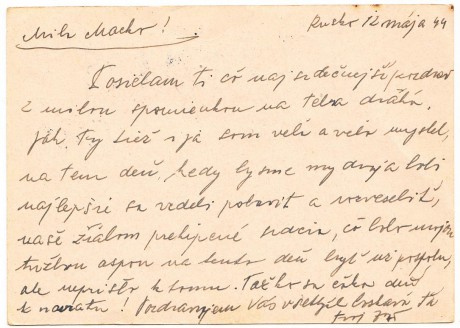 Rusko 12 mája 44
Milá Macko!
Posielam ti čo naj srdečnejší pozdrav
z milou spomienkou na teba drahá.
jak Ty tiež i ja som velà a velo myslel,
na ten deň, kedy by sme my dvaja boli
najlepšie sa vedeli pobaviť a rozveseliť,
naše žiálom prekipené srdcia, čo bolo mojou
tužbou aspoň na tento deň byť už pospolu,
ale neprišlo k tomu. Ťažko sa čaká deň
k návratu! Pozdravujem Vás všetkých